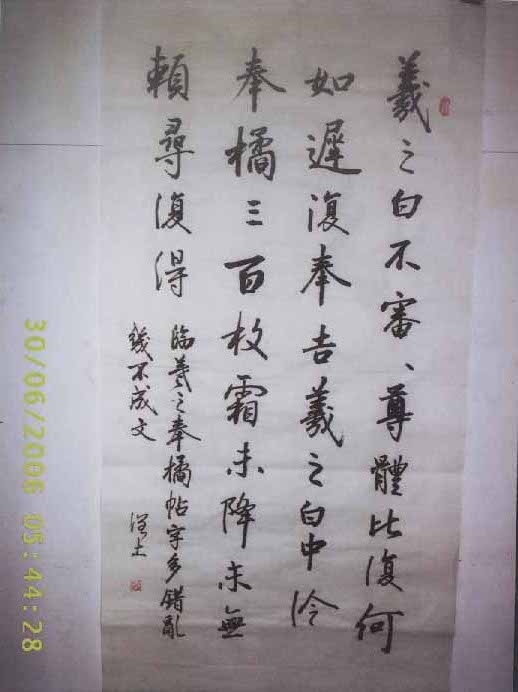 羲之白不審、尊體比復何
如遲復奉告羲之白中冷
奉橘三百枚霜未降未無
賴尋復得
臨羲之奉橘帖字多錯亂
幾不成文
30/06/2006 05:44:28